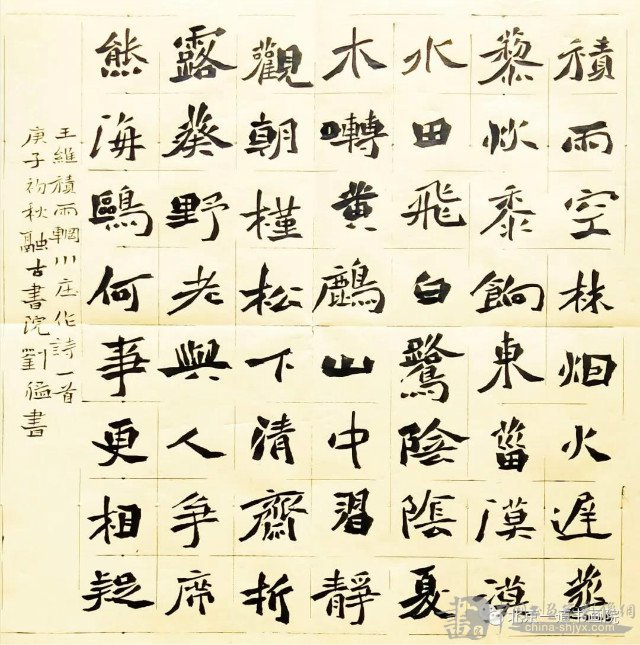 積雨空林烟火遲蒸
藜炊黍餉東菑漠漠
水田飛白鷺陰陰夏
木囀黃鸝山中習靜
觀朝槿松下清齋折
露葵野老與人爭席
熊海鷗何事更相疑
王維積雨輞川庄作詩一首
庚子初秋融古書院劉書
北京一道书画院
china-shjyx.com